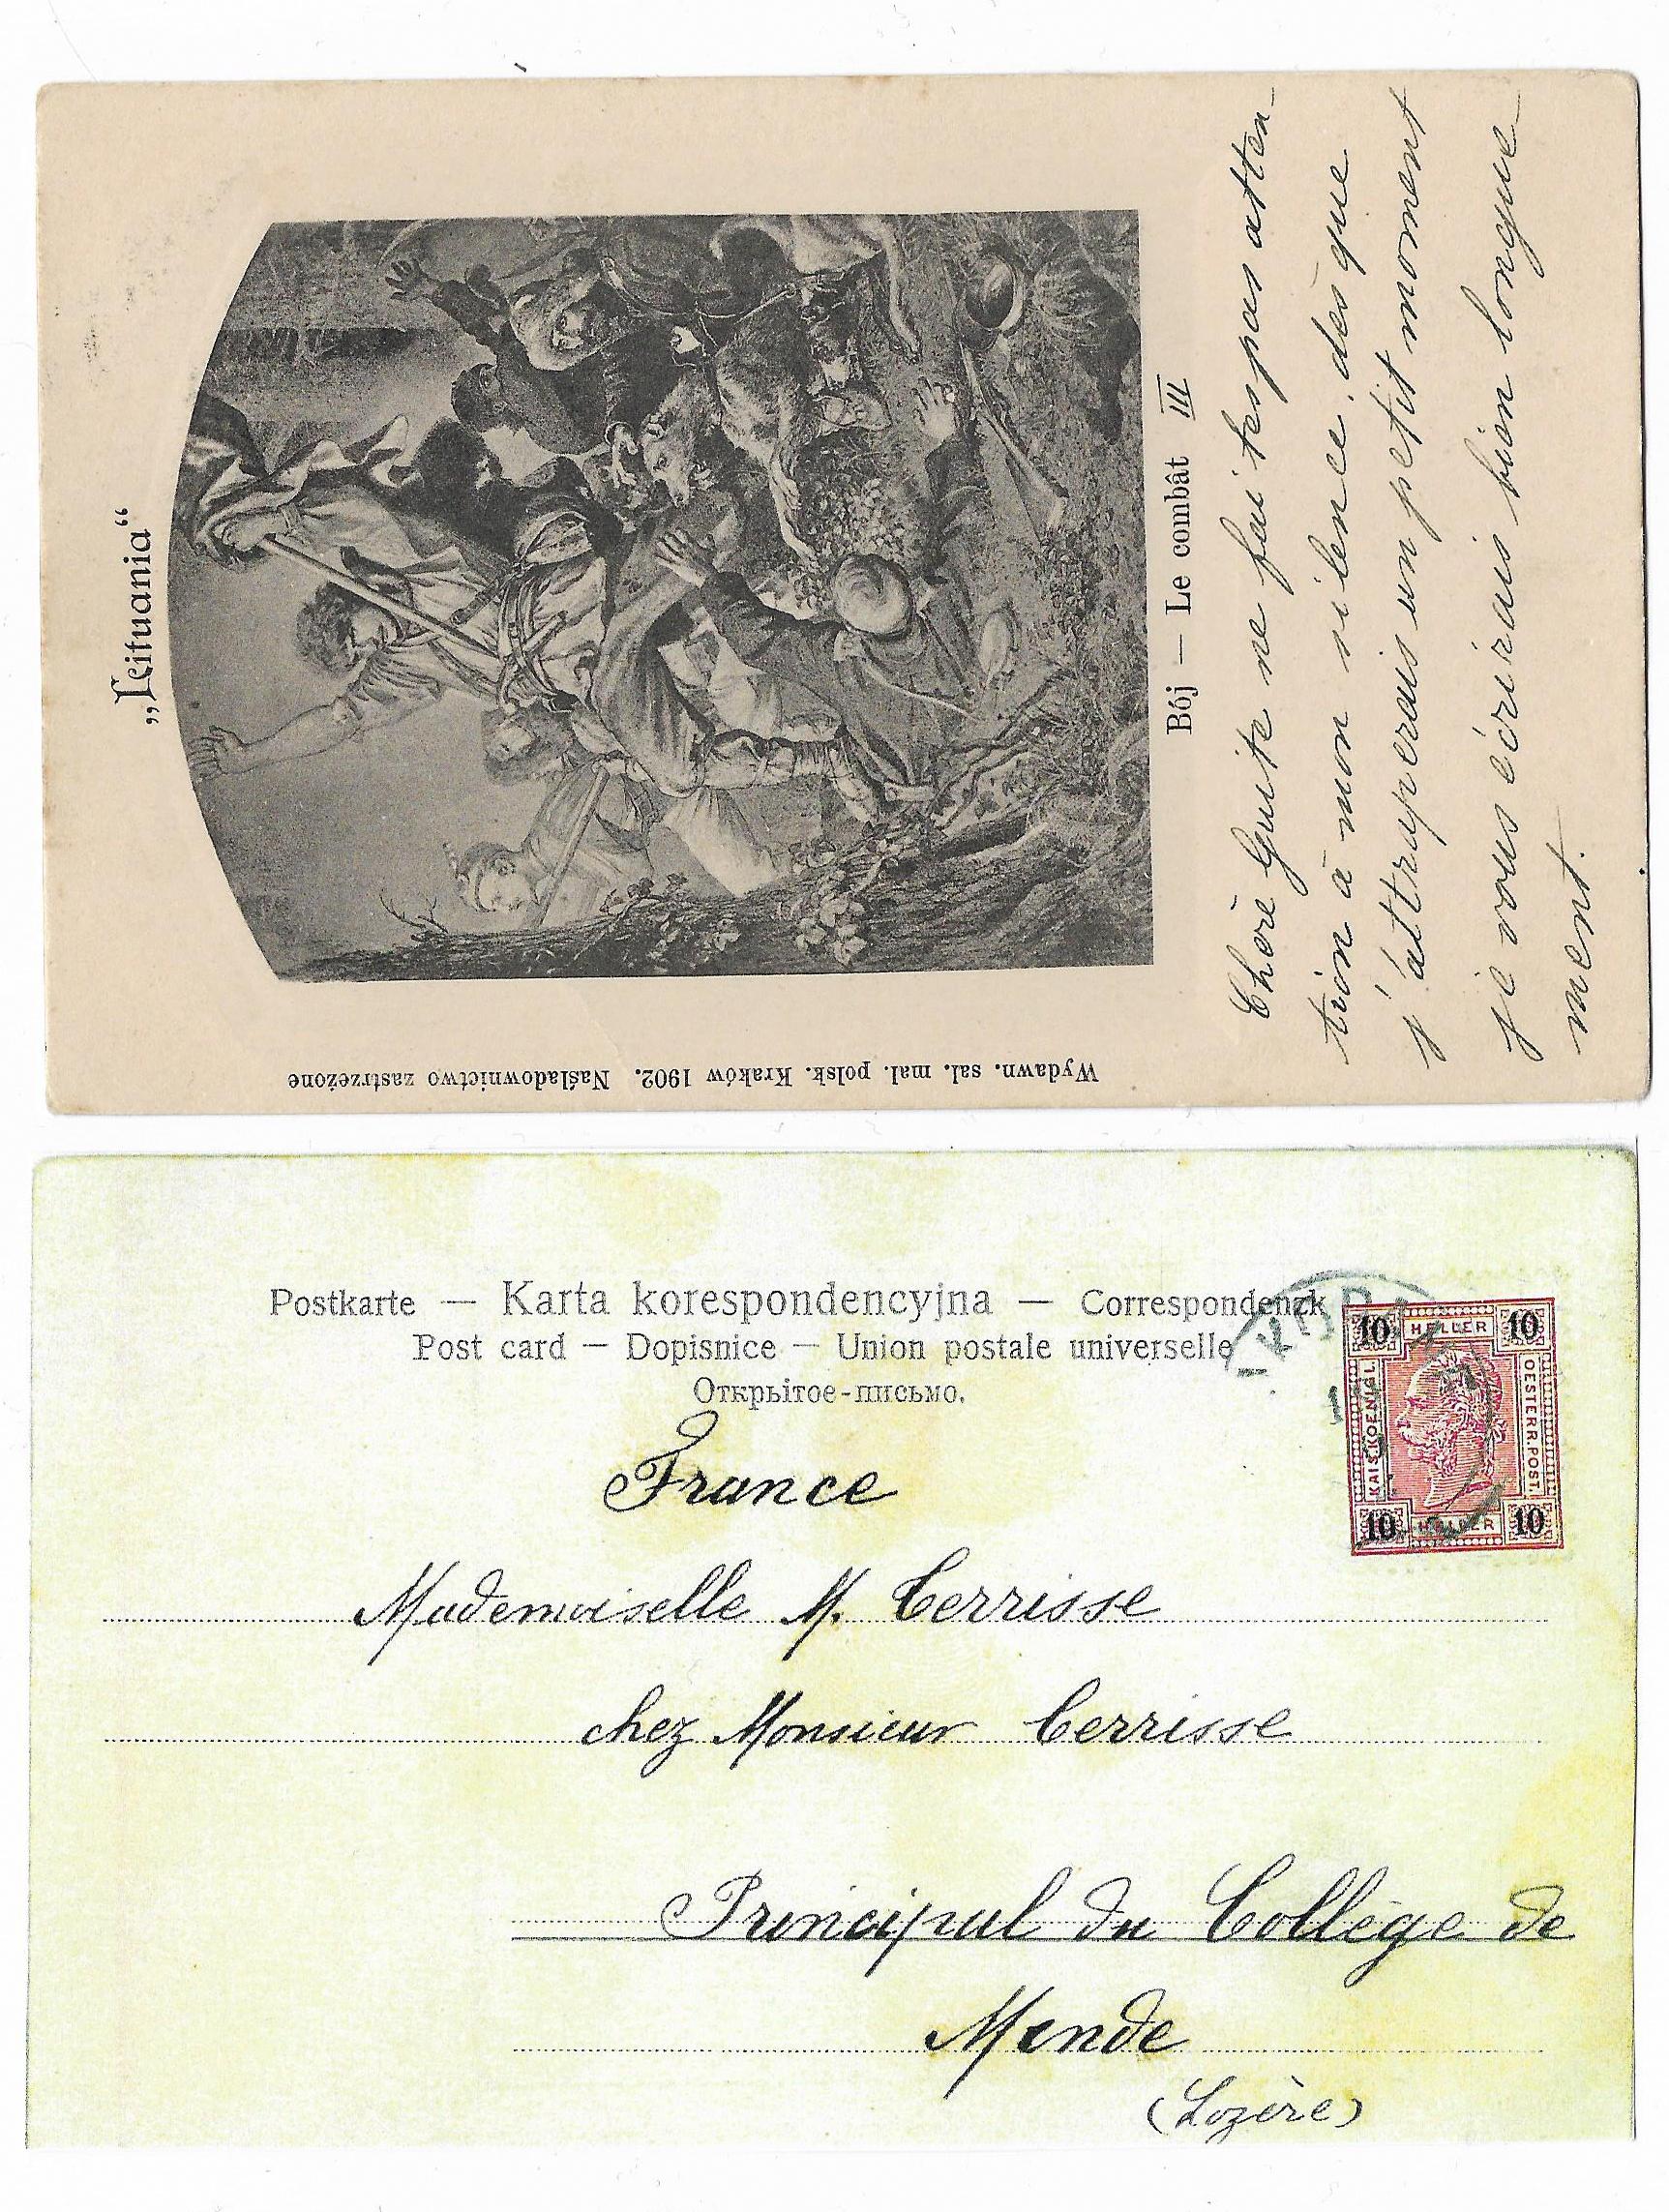 „Lituania“
Bój — Le combât III
Wydawn. sal. mal. polsk. Kraków 1902. Naśladownictwo zastrzeżone
Chère Guite ne fai tes pas atten-
tion à mon silence, dès que
j'attraperais un petit moment
je vous écrirais bien longue-
ment.
Postkarte — Karta korespondencyjna — Correspondenzk
Post card — Dopisnice — Union postale universelle
Открытое-письмо.
10 HELLER 10
KAIS.KOENIGL.
OESTERR.POST.
10 HELLER 10
France
Mademoiselle M. Cerrisse
chez Monsieur Cerrisse
Principal du Collège de
Mende
(Lozère)